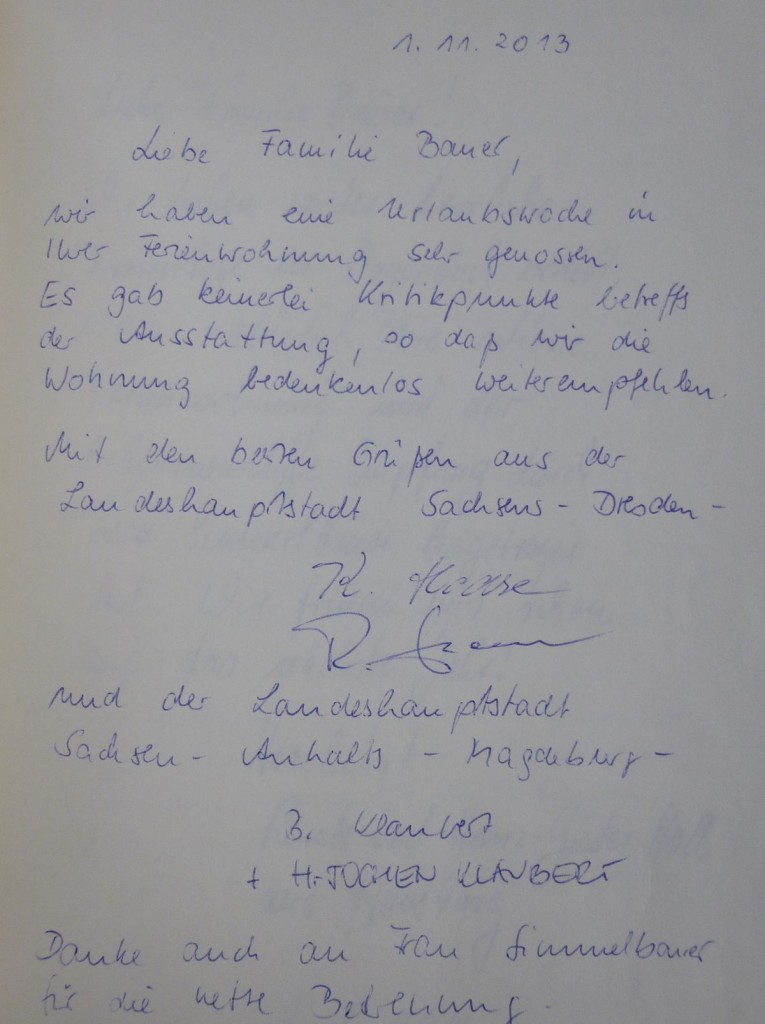 1. 11. 2013
Liebe Familie Bauer,
wir haben eine Urlaubswoche in
Ihrer Ferienwohnung sehr genossen.
Es gab keinerlei Kritikpunkte betreffs
der Ausstattung, so daß wir die
Wohnung bedenkenlos weiterempfehlen.
Mit den besten Grüßen aus der
Landeshauptstadt Sachsens - Dresden -
K.
R.
und der Landeshauptstadt
Sachsen - Anhalts - Magdeburg -
B. Klaubert
+ H-JOCHEN KLAUBERT
Danke auch an Frau Simmelbauer
für die nette Betreuung.